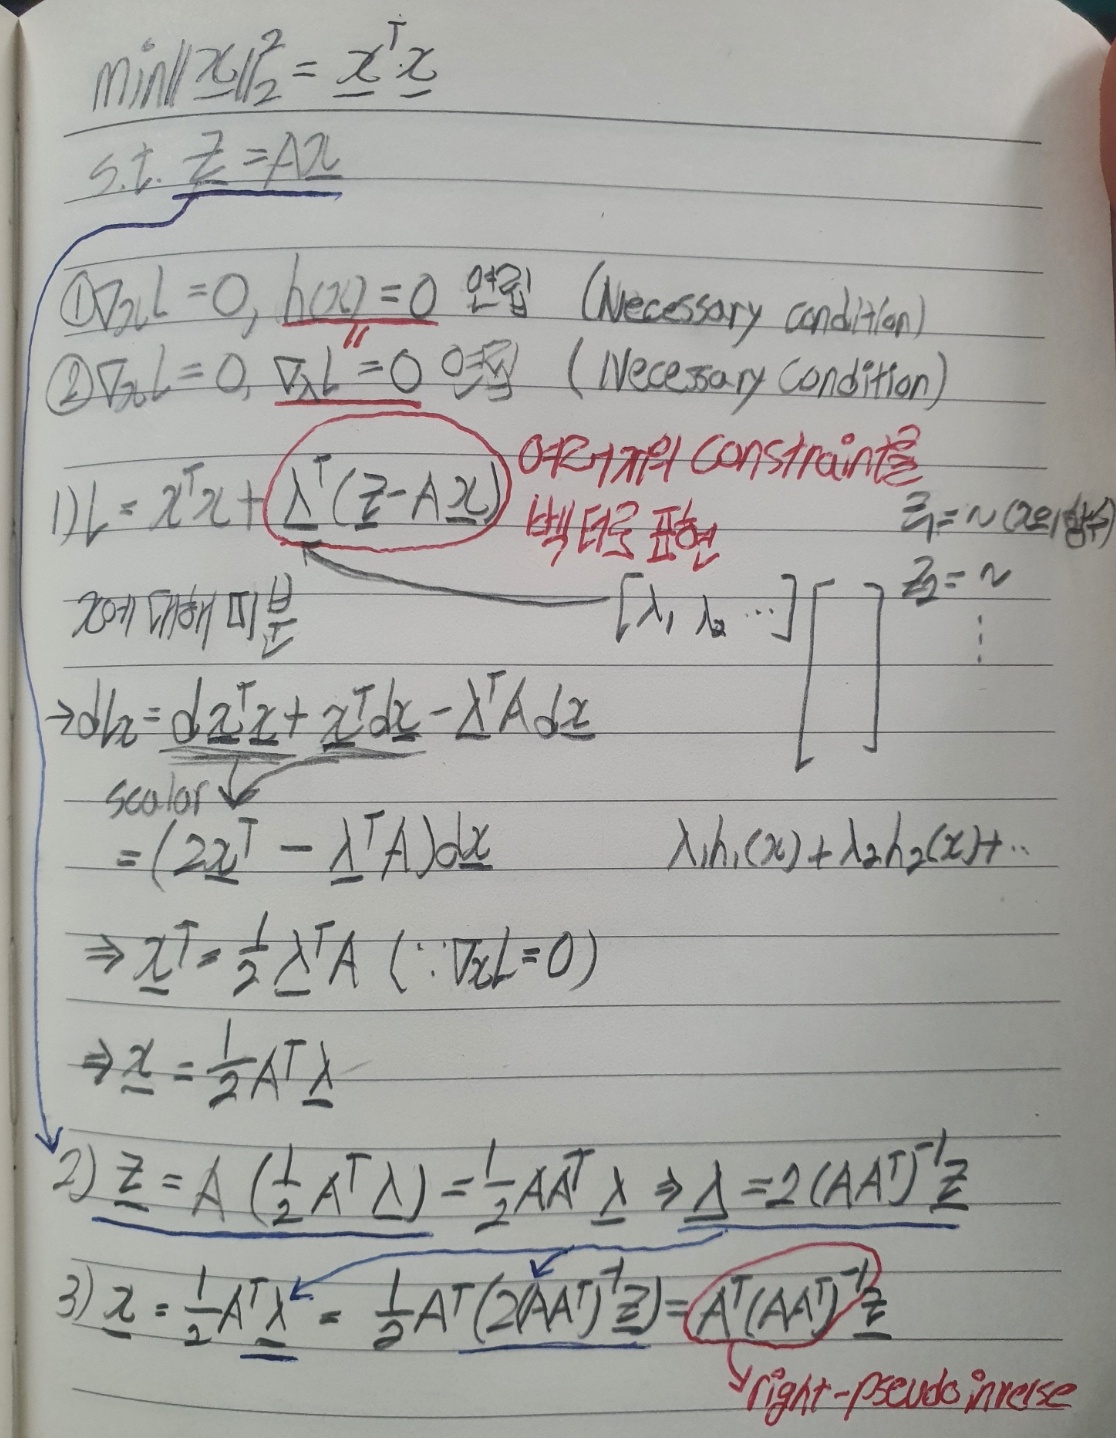 min||x||₂² = xᵀx
s.t. z = Ax
① ∇ₓL = 0, h(x) = 0 연립 (Necessary condition)
"
② ∇ₓL = 0, ∇λL = 0 연립 (Necessary Condition)
1) L = xᵀx + λᵀ(z - Ax)
여러가지의 constraint를
벡터로 표현
z₁ = ~ (x의 함수)
z₂ = ~
⋮
[λ₁ λ₂ ⋯] [ ]
x에 대해 미분
→ dLx = dxᵀx + xᵀdx - λᵀAdx
scalar
= (2xᵀ - λᵀA)dx
λ₁h₁(x) + λ₂h₂(x) + ⋯
⇒ xᵀ = ½ λᵀA (∵ ∇ₓL = 0)
⇒ x = ½ Aᵀλ
2) z = A(½ Aᵀλ) = ½ AAᵀ λ ⇒ λ = 2(AAᵀ)⁻¹z
3) x = ½ Aᵀλ = ½ Aᵀ(2(AAᵀ)⁻¹z) = Aᵀ(AAᵀ)⁻¹z
right-pseudo inverse